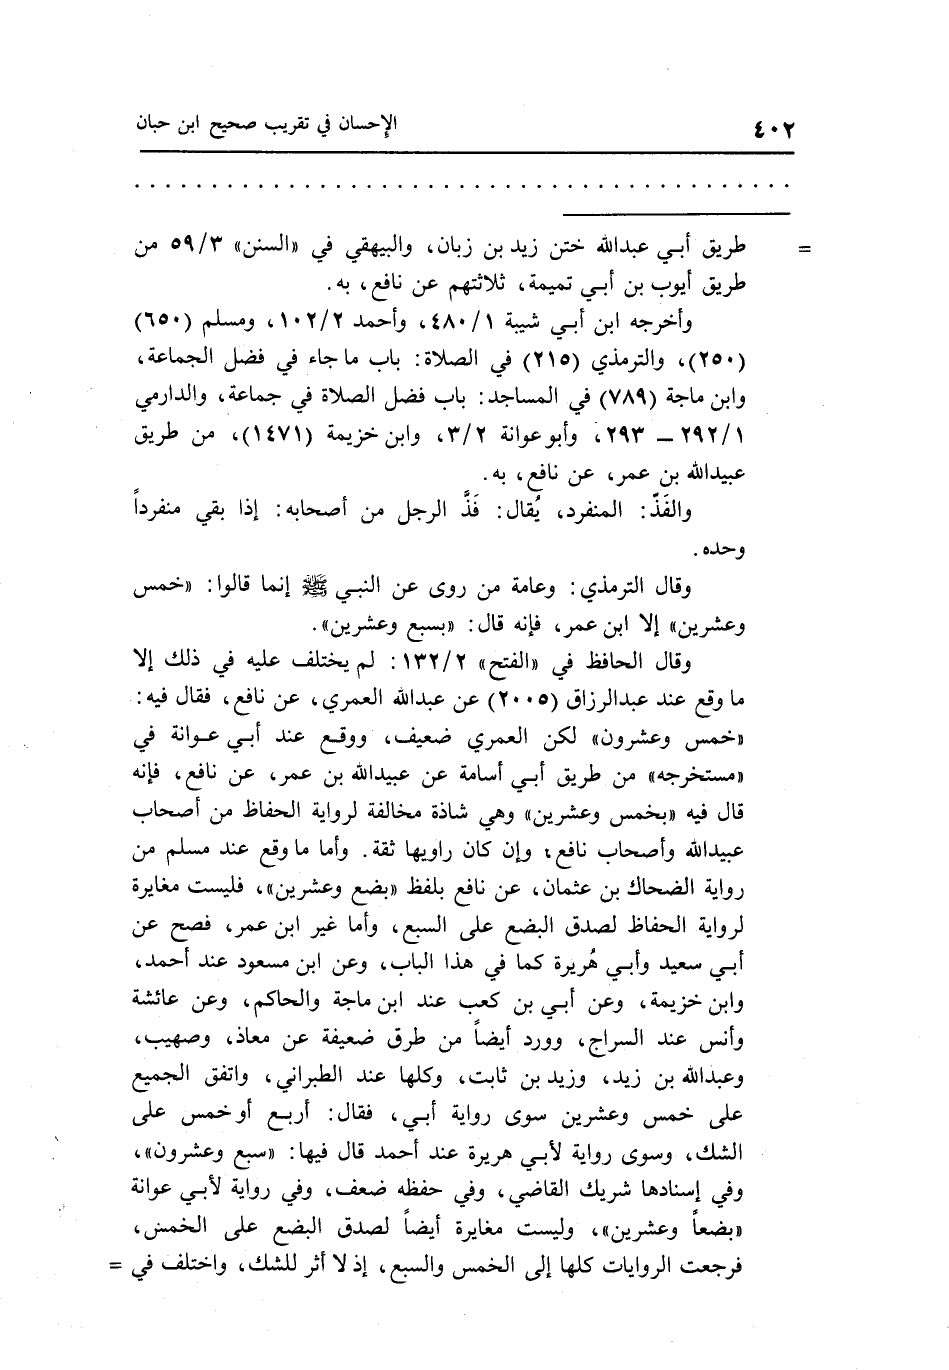 ٤٠٢ الإحسان في تقريب صحيح ابن حبان
. . . . . . . . . . . . . . . . . . . . . . . . . . . . . . . . . . .
= طريق أبي عبدالله ختن زيد بن زبان، والبيهقي في «السنن» ٥٩/٣ من
طريق أيوب بن أبي تميمة، ثلاثتهم عن نافع، به.
وأخرجه ابن أبي شيبة ٤٨٠/١، وأحمد ١٠٢/٢، ومسلم (٦٥٠)
(٢٥٠)، والترمذي (٢١٥) في الصلاة: باب ما جاء في فضل الجماعة،
وابن ماجة (٧٨٩) في المساجد: باب فضل الصلاة في جماعة، والدارمي
٢٩٢/١ ــ ٢٩٣، وأبو عوانة ٣/٢، وابن خزيمة (١٤٧١)، من طريق
عبيدالله بن عمر، عن نافع، به.
والفَذّ: المنفرد، يُقال: فَذَّ الرجل من أصحابه: إذا بقي منفرداً
وحده.
وقال الترمذي: وعامة من روى عن النبي ﷺ إنما قالوا: «خمس
وعشرين» إلا ابن عمر، فإنه قال: «بسبع وعشرين».
وقال الحافظ في «الفتح» ١٣٢/٢: لم يختلف عليه في ذلك إلا
ما وقع عند عبدالرزاق (٢٠٠٥) عن عبدالله العمري، عن نافع، فقال فيه:
«خمس وعشرون» لكن العمري ضعيف، ووقع عند أبي عوانة في
«مستخرجه» من طريق أبي أسامة عن عبيدالله بن عمر، عن نافع، فإنه
قال فيه «بخمس وعشرين» وهي شاذة مخالفة لرواية الحفاظ من أصحاب
عبيدالله وأصحاب نافع، وإن كان راويها ثقة. وأما ما وقع عند مسلم من
رواية الضحاك بن عثمان، عن نافع بلفظ «بضع وعشرين»، فليست مغايرة
لرواية الحفاظ لصدق البضع على السبع، وأما غير ابن عمر، فصح عن
أبي سعيد وأبي هُريرة كما في هذا الباب، وعن ابن مسعود عند أحمد،
وابن خزيمة، وعن أبي بن كعب عند ابن ماجة والحاكم، وعن عائشة
وأنس عند السراج، وورد أيضاً من طرق ضعيفة عن معاذ، وصهيب،
وعبدالله بن زيد، وزيد بن ثابت، وكلها عند الطبراني، واتفق الجميع
على خمس وعشرين سوى رواية أبي، فقال: أربع أو خمس على
الشك، وسوى رواية لأبي هريرة عند أحمد قال فيها: «سبع وعشرون»،
وفي إسنادها شريك القاضي، وفي حفظه ضعف، وفي رواية لأبي عوانة
«بضعاً وعشرين»، وليست مغايرة أيضاً لصدق البضع على الخمس،
فرجعت الروايات كلها إلى الخمس والسبع، إذ لا أثر للشك، واختلف في =